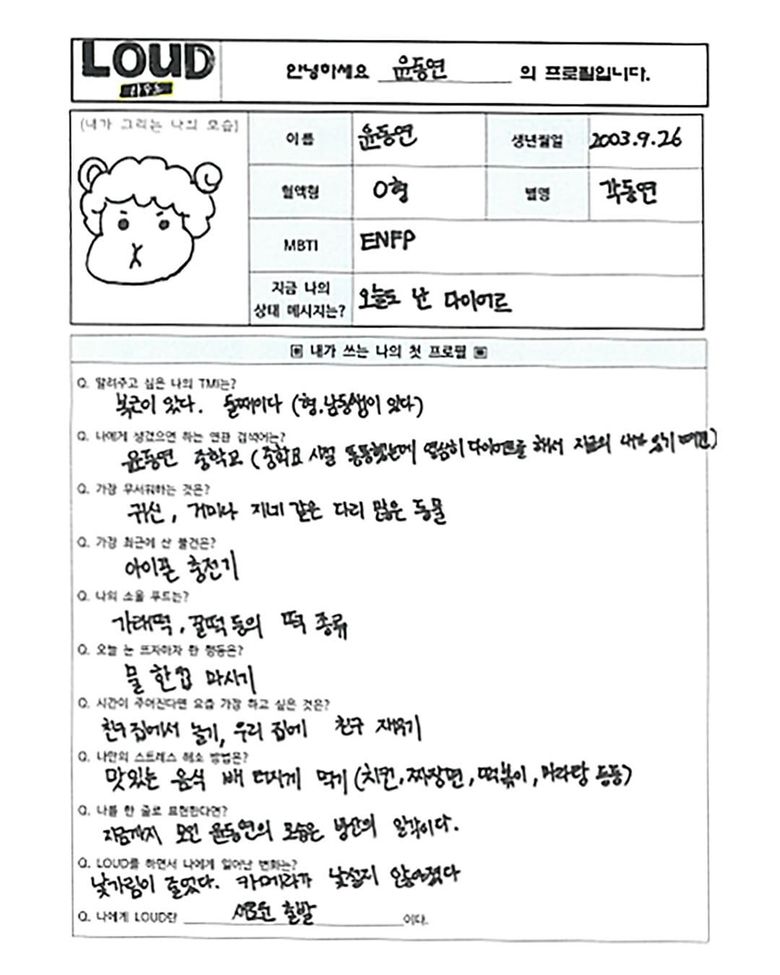 LOUD
라우드
안녕하세요 윤동연 의 프로필입니다.
(내가 그리는 나의 모습)
이름 윤동연 생년월일 2003.9.26
혈액형 O형 별명 각동연
MBTI ENFP
지금 나의 상태 메시지는? 오늘도 난 다이어트
▣ 내가 쓰는 나의 첫 프로필 ▣
Q. 알려주고 싶은 나의 TMI는?
복근이 있다. 둘째이다 (형,남동생이 있다)
Q. 나에게 생겼으면 하는 연관 검색어는?
윤동연 중학교 (중학교 시절 뚱뚱했는데 열심히 다이어트를 해서 지금의 내가 있기 때문)
Q. 가장 무서워하는 것은?
귀신, 거미나 지네 같은 다리 많은 동물
Q. 가장 최근에 산 물건은?
아이폰 충전기
Q. 나의 소울 푸드는?
가래떡, 꿀떡 등의 떡 종류
Q. 오늘 눈 뜨자마자 한 행동은?
물 한컵 마시기
Q. 시간이 주어진다면 요즘 가장 하고 싶은 것은?
친구 집에서 놀기, 우리 집에 친구 재우기
Q. 나만의 스트레스 해소 방법은?
맛있는 음식 배 터지게 먹기 (치킨, 짜장면, 떡볶이, 마라탕 등등)
Q. 나를 한 줄로 표현한다면?
지금까지 보인 윤동연의 모습은 빙산의 일각이다.
Q. LOUD를 하면서 나에게 일어난 변화는?
낯가림이 줄었다. 카메라가 낯설지 않아졌다
Q. 나에게 LOUD란 새로운 출발 이다.